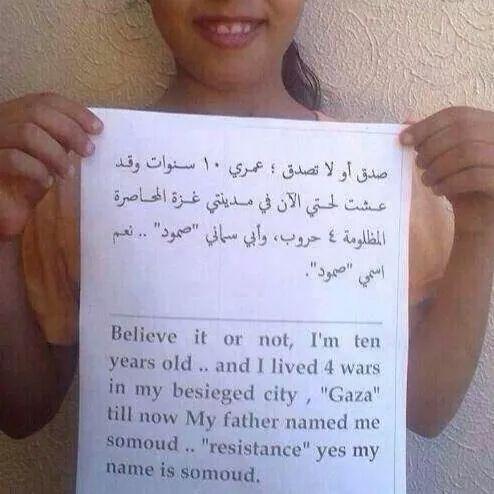 صدق أو لا تصدق ؛ عمري ١٠ سنوات وقد
عشت لحتي الآن في مدينتي غزة المحاصرة
المظلومة ٤ حروب، وأبي سماني "صمود" .. نعم
اسمي "صمود".
Believe it or not, I'm ten
years old .. and I lived 4 wars
in my besieged city , "Gaza"
till now My father named me
somoud .. "resistance" yes my
name is somoud.